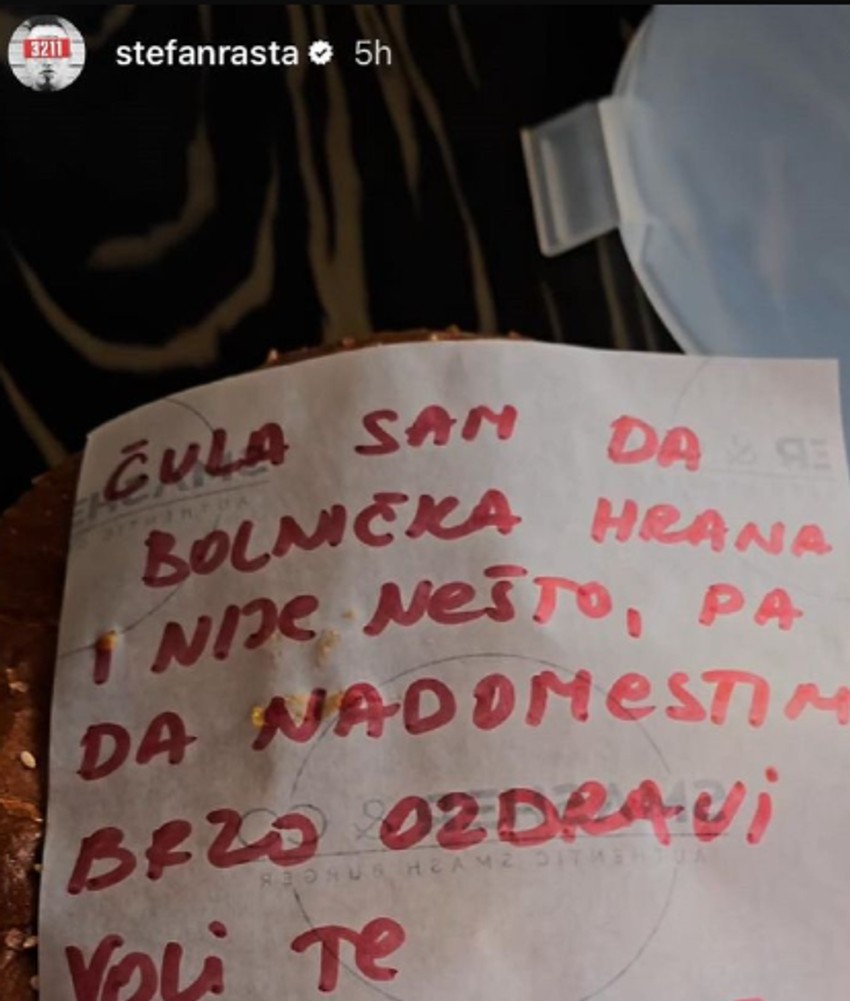 3211
stefanrasta 5h
ČULA SAM DA
BOLNIČKA HRANA
I NIJE NEŠTO, PA
DA NADOMESTIM
BRZO OZDRAVI
VOLI TE
SMASHER & CO
AUTHENTIC SMASH BURGER